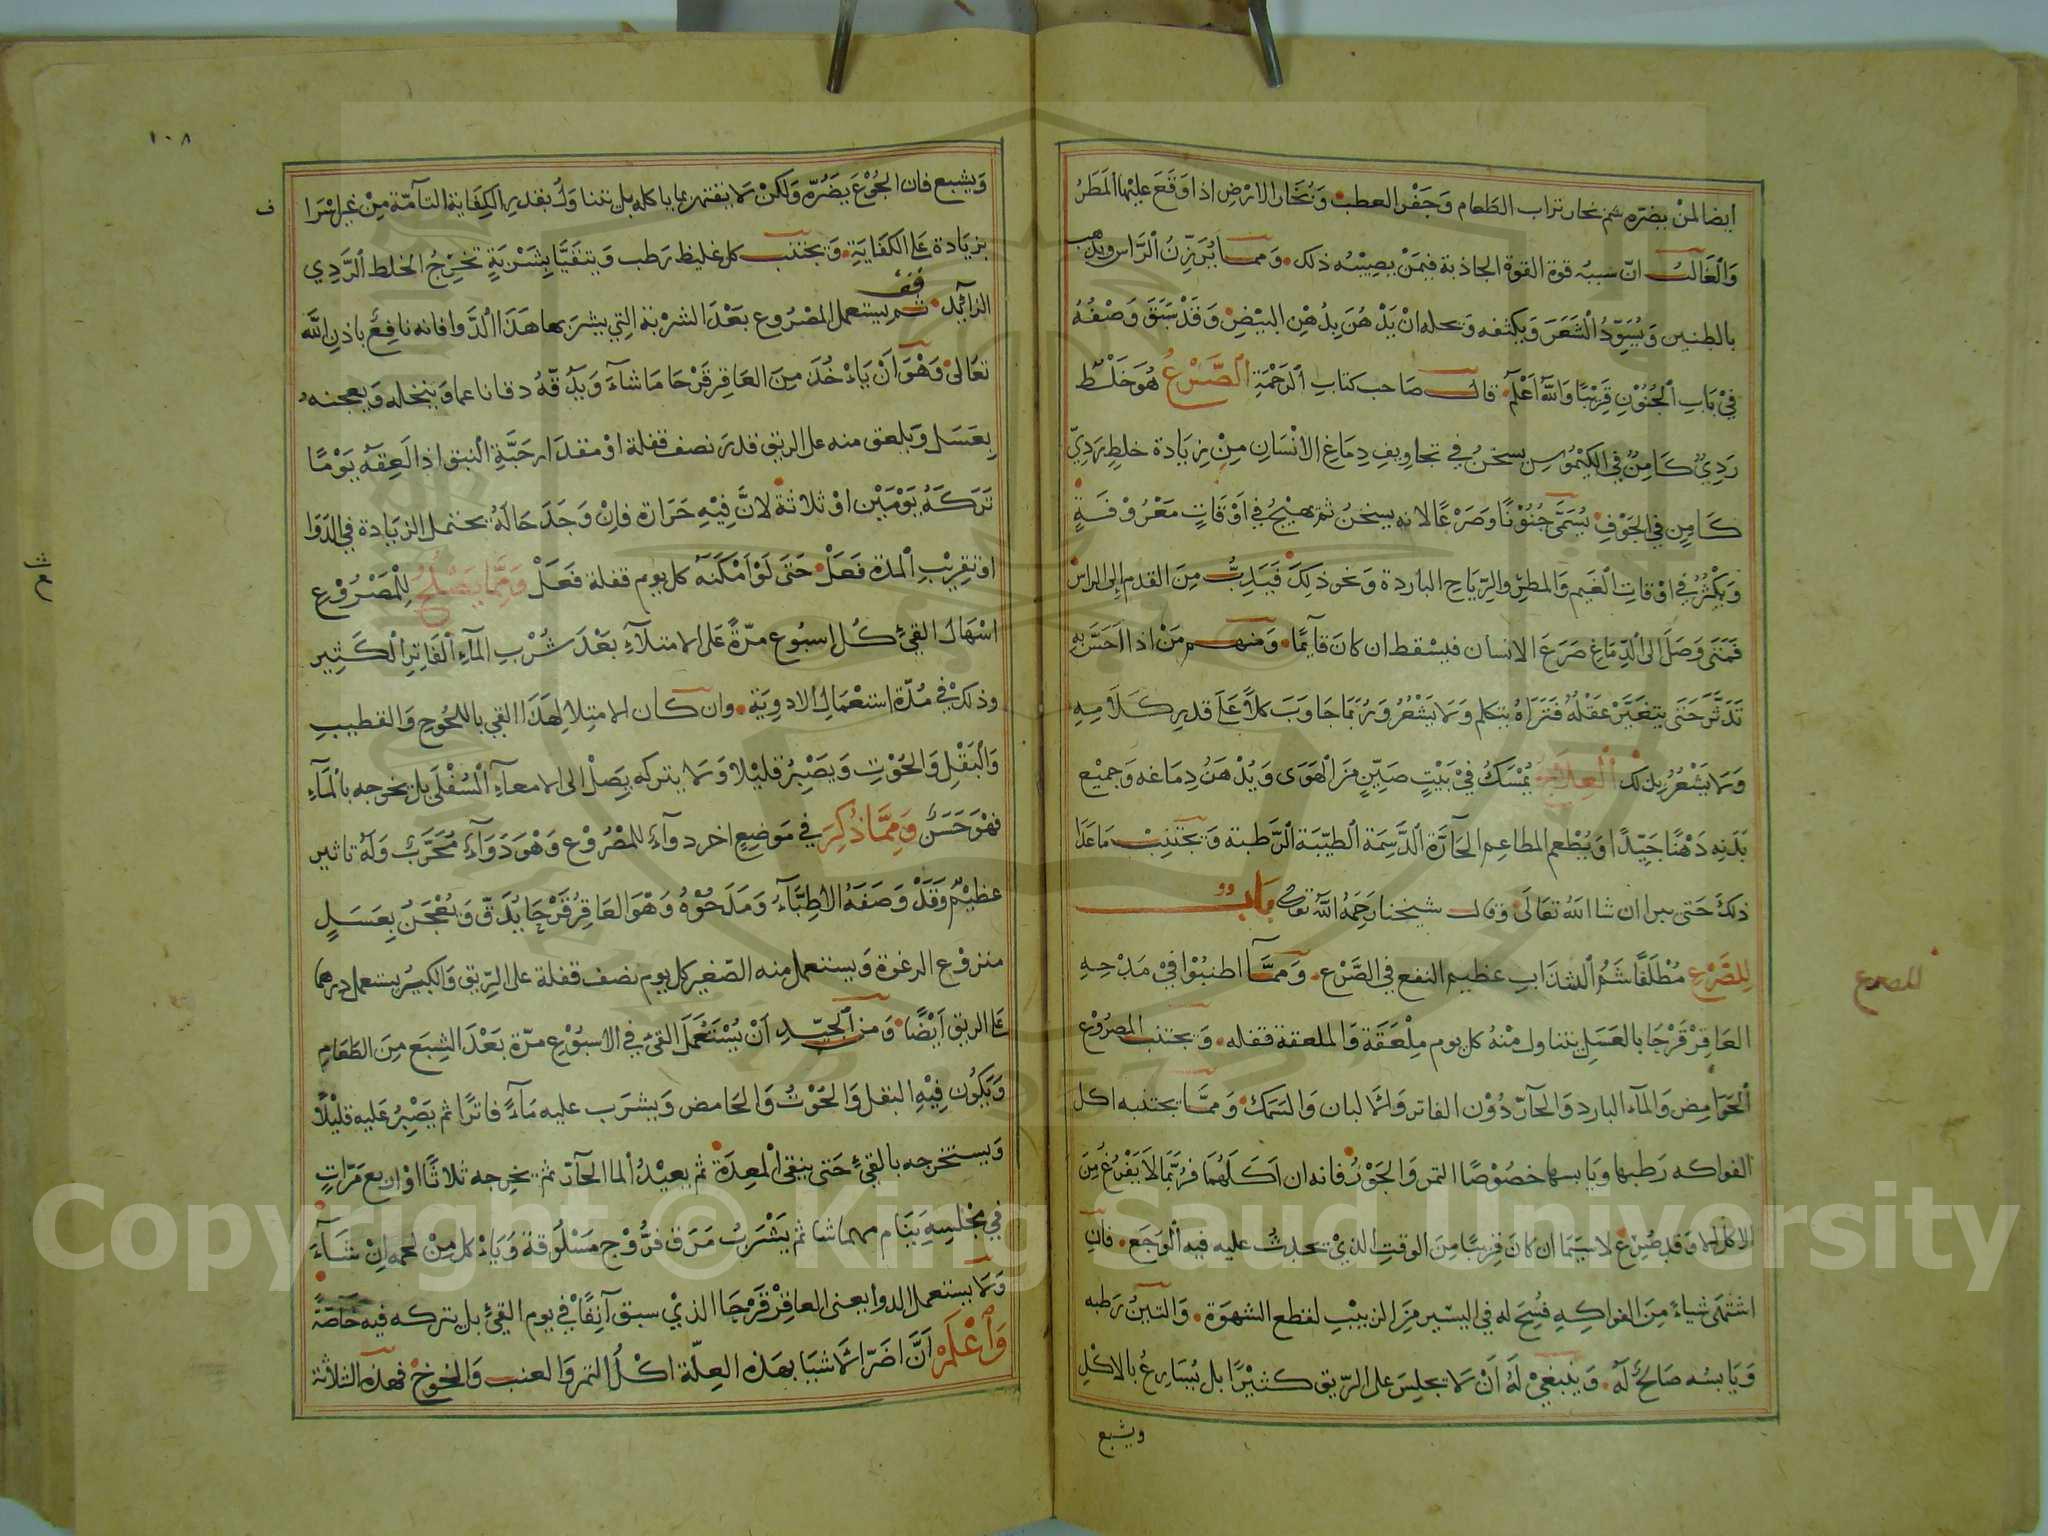 أيضا لمن يضره شم بخار تراب الطعام وجفر العطب وبخار الارض اذا وقع عليها المطر
والغالب ان سببه قوة القوة الجاذبة فيمن يصيبه ذلك ومما يرزن الراس ويذهب
بالطنين ويسود الشعر ويكثفه ويحله ان يدهن بدهن البيض وقد سبق وصفه
في باب الجنون قريبا والله اعلم قال صاحب كتاب الرحمة الصرع هو خلط
ردي كامن في الكيموس يسخن في تجاويف دماغ الانسان من زيادة خلط ردي
كامن في الجوف يسمى جنونا وصرعا لانه يسخن ثم يهيج في اوقات معروفة
ويكثر في اوقات الغيم والمطر والرياح الباردة ونحو ذلك فيدب من القدم الى الراس
فمتى وصل الى الدماغ صرع الانسان فيسقط ان كان قائما ومنهم من اذا احس به
تدثر حتى يتغير عقله فتراه يتكلم ولا يشعر وربما جاوب كلا على قدر كلامه
ولا يشعر بذلك العلاج يمسك في بيت صين من الهوى ويدهن دماغه وجميع
بدنه دهنا جيدا ويطعم المطاعم الحارة الدسمة الطيبة الرطبة ويجتنب ما عدا
ذلك حتى يبرا ان شا الله تعالى وقال شيخنا رحمه الله تعالى باب
للصرع مطلقا شم الشذاب عظيم النفع في الصرع ومما اطنبوا في مدحه
العاقر قرحا بالعسل يتناول منه كل يوم ملعقة والملعقة قفله ويجتنب المصروع
الحوامض والماء البارد والحار دون الفاتر والالبان والسمك ومما يجتنبه اكل
الفواكه رطبها ويابسها خصوصا التمر والجوز فانه ان اكلهما فربما لا يفرغ من
الاكل الا وقد صرع لاسيما ان كان قريبا من الوقت الذي يحدث عليه فيه الوجع فان
اشتهى شياء من الفواكه فسح له في اليسير من الزبيب لقطع الشهوة والتين رطبه
ويابسه صالح له وينبغي له ان لا يجلس على الريق كثيرا بل يسارع بالاكل
ويشبع
للصرع
١٠٨
ويشبع فان الجوع يضره ولكن لا يقتهر عما ياكله بل يتناول بقدر الكفاية التامة من غير اشرا
ف
بزيادة على الكفاية ويجتنب كل غليظ رطب ويتقيا بشربة تخرج الخلط الردي
الزائد ثم يستعمل المصروع بعد الشربة التي يشربها هذا الدوا فانه نافع باذن الله
قف
تعالى وهو ان ياخذ من العاقر قرحا ما شاء ويدقه دقا ناعما وينخله ويعجنه
بعسل ويلعق منه على الريق قدر نصف قفلة او مقدار حبة النبق اذا لعقه يوما
تركه يومين او ثلاثة لان فيه حرارة فان وجد حاله يحتمل الزيادة في الدوا
او تقريب المدة فعل حتى لو امكنه كل يوم قفلة فعل ومما يصلح للمصروع
اسهال القيء كل اسبوع مرة على الامتلاء بعد شرب الماء الفاتر الكثير
وذلك في مدة استعمال الادوية وان كان الامتلا لهذا القي باللحوح والقطيب
والبقل والحوت ويصبر قليلا ولا يتركه يصل الى الامعاء السفلى بل يخرجه بالماء
فهو حسن ومما ذكر في موضع اخر دواء للمصروع وهو دواء مجرب وله تاثير
عظيم وقد وصفه الاطباء ومدحوه وهو العاقر قرحا يدق ويعجن بعسل
منزوع الرغوة ويستعمل منه الصغير كل يوم نصف قفلة على الريق والكبير يستعمل درهما
على الريق ايضا ومن الجيد ان يستعمل القيء في الاسبوع مرة بعد الشبع من الطعام
ويكون فيه البقل والحوت والحامض ويشرب عليه ماء فاترا ثم يصبر عليه قليلا
ويستخرجه بالقيء حتى ينقى المعدة ثم يعيد الما الحار ثم يخرجه ثلاثا او اربع مرات
في مجلسه ينام مهما شا ثم يشرب مرق فروج مسلوقة وياكل من لحمه ان شاء
ولا يستعمل الدوا يعني العاقر قرحا الذي سبق آنفا في يوم القيء بل يتركه فيه خاصة
واعلم ان اضر الاشيا بهذه العلة اكل التمر والعنب والخوخ فهذه الثلاثة
Copyright © King Saud University